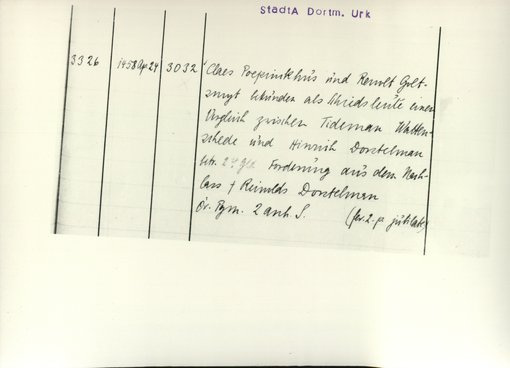 StadtA Dortm. Urk
3326 1458 Apr 24 3032 Claes Poepinkhus und Renolt Golt-
smyt bekunden als Schiedsleute einen
Vergleich zwischen Tideman Watten-
schede und Hinrich Dorstelman
betr. 24 gld Forderung aus dem Nach-
lass † Reinolds Dorstelman
Or. Pgm. 2 anh. S. (fer. 2. p. jubilate)